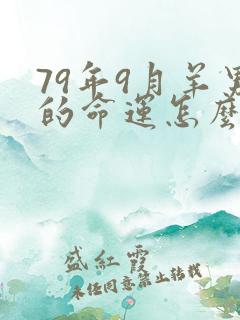 79年9月羊男
的命运怎么
盛红霞
未经同意禁止转载